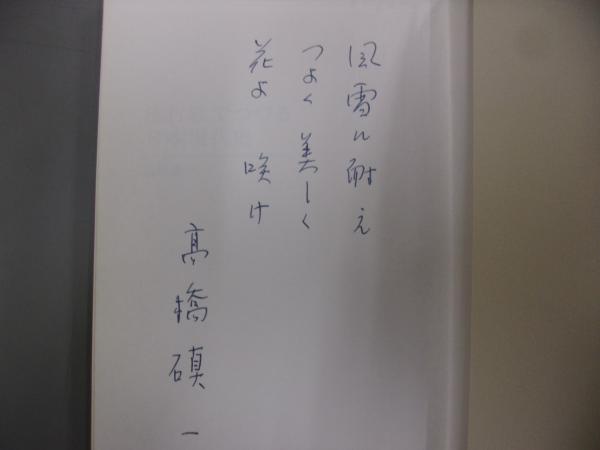 風雪に耐え
つよく美しく
花よ 咲け
高橋磌一